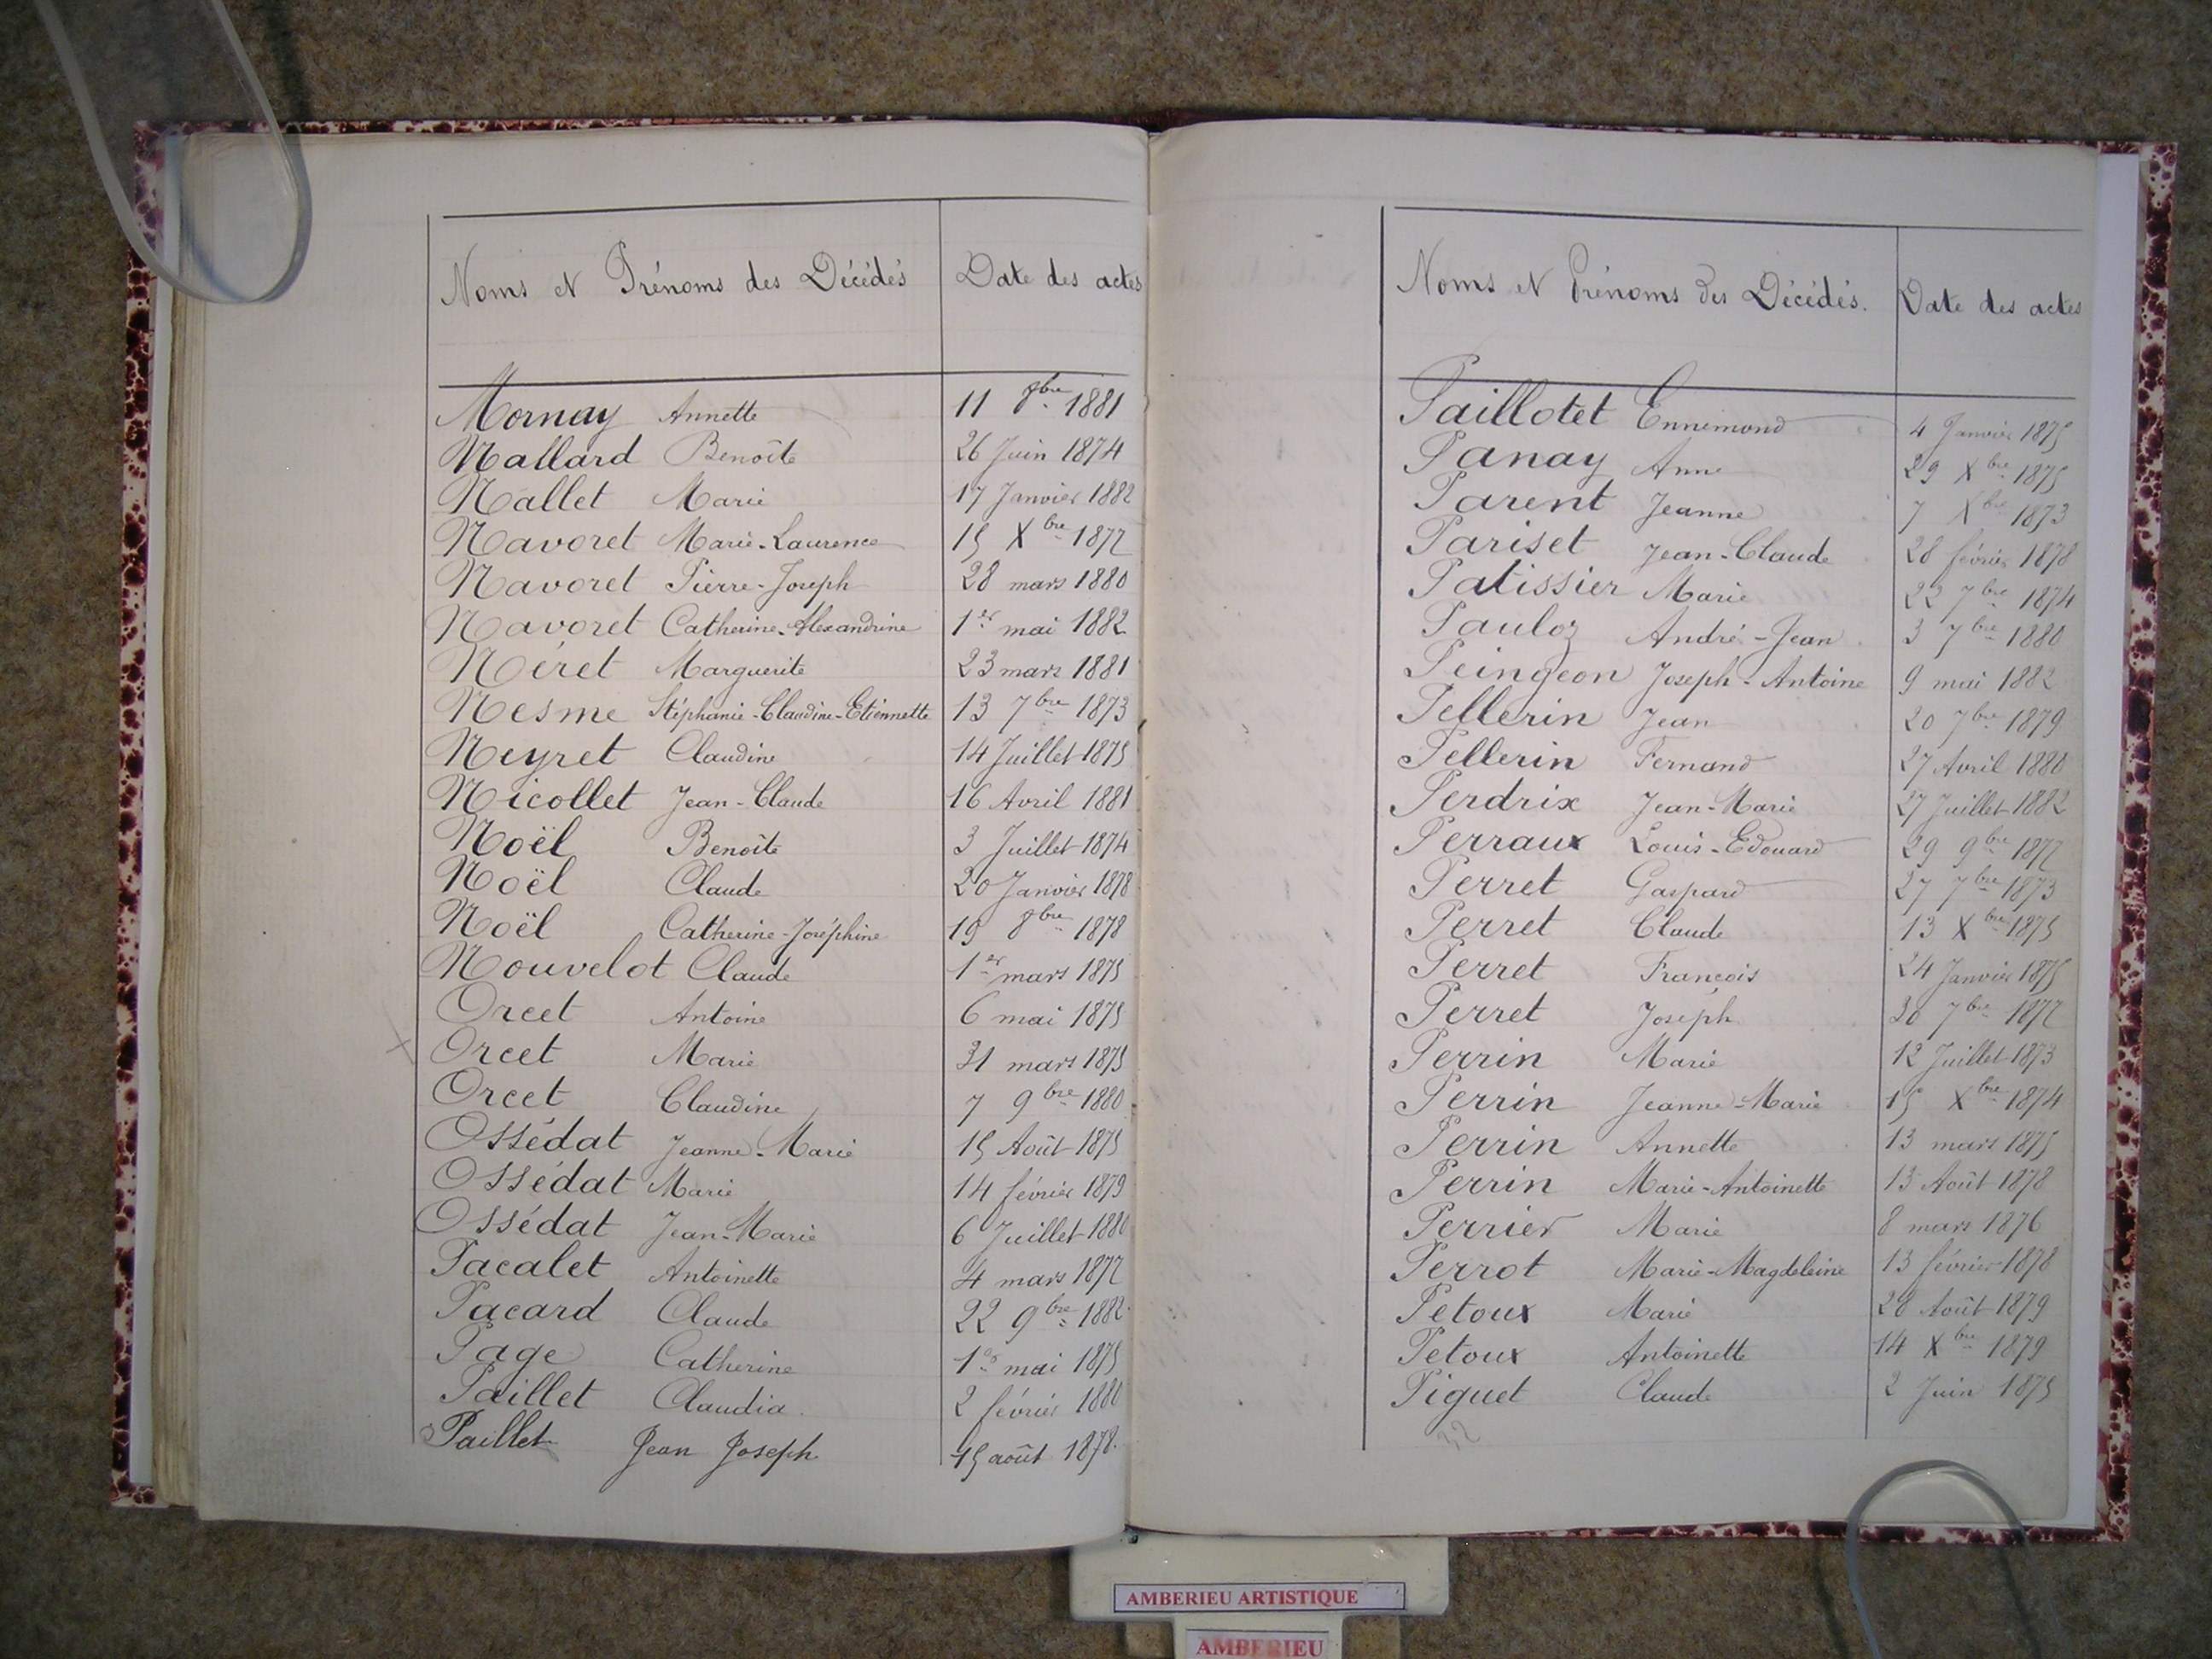 Noms et Prénoms des Décédés Date des actes
Mornay Annette 11 8bre 1881
Mallard Benoîte 26 Juin 1874
Nallet Marie 17 Janvier 1882
Navoret Marie-Laurence 15 Xbre 1877
Navoret Pierre-Joseph 28 mars 1880
Navoret Catherine-Alexandrine 1er mai 1882
Néret Marguerite 23 mars 1881
Nesme Stéphanie-Claudine-Etiennette 13 7bre 1873
Neyret Claudine 14 Juillet 1875
Nicollet Jean-Claude 16 Avril 1881
Noël Benoîte 3 Juillet 1874
Noël Claude 20 Janvier 1878
Noël Catherine-Joséphine 19 8bre 1878
Nouvelot Claude 1er mars 1875
Orcet Antoine 6 mai 1875
Orcet Marie 31 mars 1875
Orcet Claudine 7 9bre 1880
Ossédat Jeanne-Marie 15 Août 1875
Ossédat Marie 14 février 1879
Ossédat Jean-Marie 6 Juillet 1880
Pacalet Antoinette 4 mars 1877
Pacard Claude 22 9bre 1882
Page Catherine 1er mai 1875
Paillet Claudia 2 février 1880
Paillet Jean Joseph 15 août 1878.
Noms et Prénoms des Décédés. Date des actes
Paillotet Ennemond 4 Janvier 1875
Panay Anne 29 Xbre 1875
Parent Jeanne 7 Xbre 1873
Pariset Jean-Claude 28 février 1878
Patissier Marie 22 7bre 1874
Pauloz André-Jean 3 7bre 1880
Peingeon Joseph-Antoine 9 mai 1882
Pellerin Jean 20 7bre 1879
Pellerin Fernand 27 Avril 1880
Perdrix Jean-Marie 27 Juillet 1882
Perraux Louis-Edouard 29 9bre 1877
Perret Gaspard 27 7bre 1873
Perret Claude 13 Xbre 1875
Perret François 24 Janvier 1875
Perret Joseph 30 7bre 1877
Perrin Marie 12 Juillet 1873
Perrin Jeanne-Marie 15 Xbre 1874
Perrin Annette 13 mars 1875
Perrin Marie-Antoinette 13 Août 1878
Perrier Marie 8 mars 1876
Perrot Marie-Magdeleine 13 février 1878
Petoux Marie 28 Août 1879
Petoux Antoinette 14 Xbre 1879
Piguet Claude 2 Juin 1875
AMBERIEU ARTISTIQUE
AMBERIEU